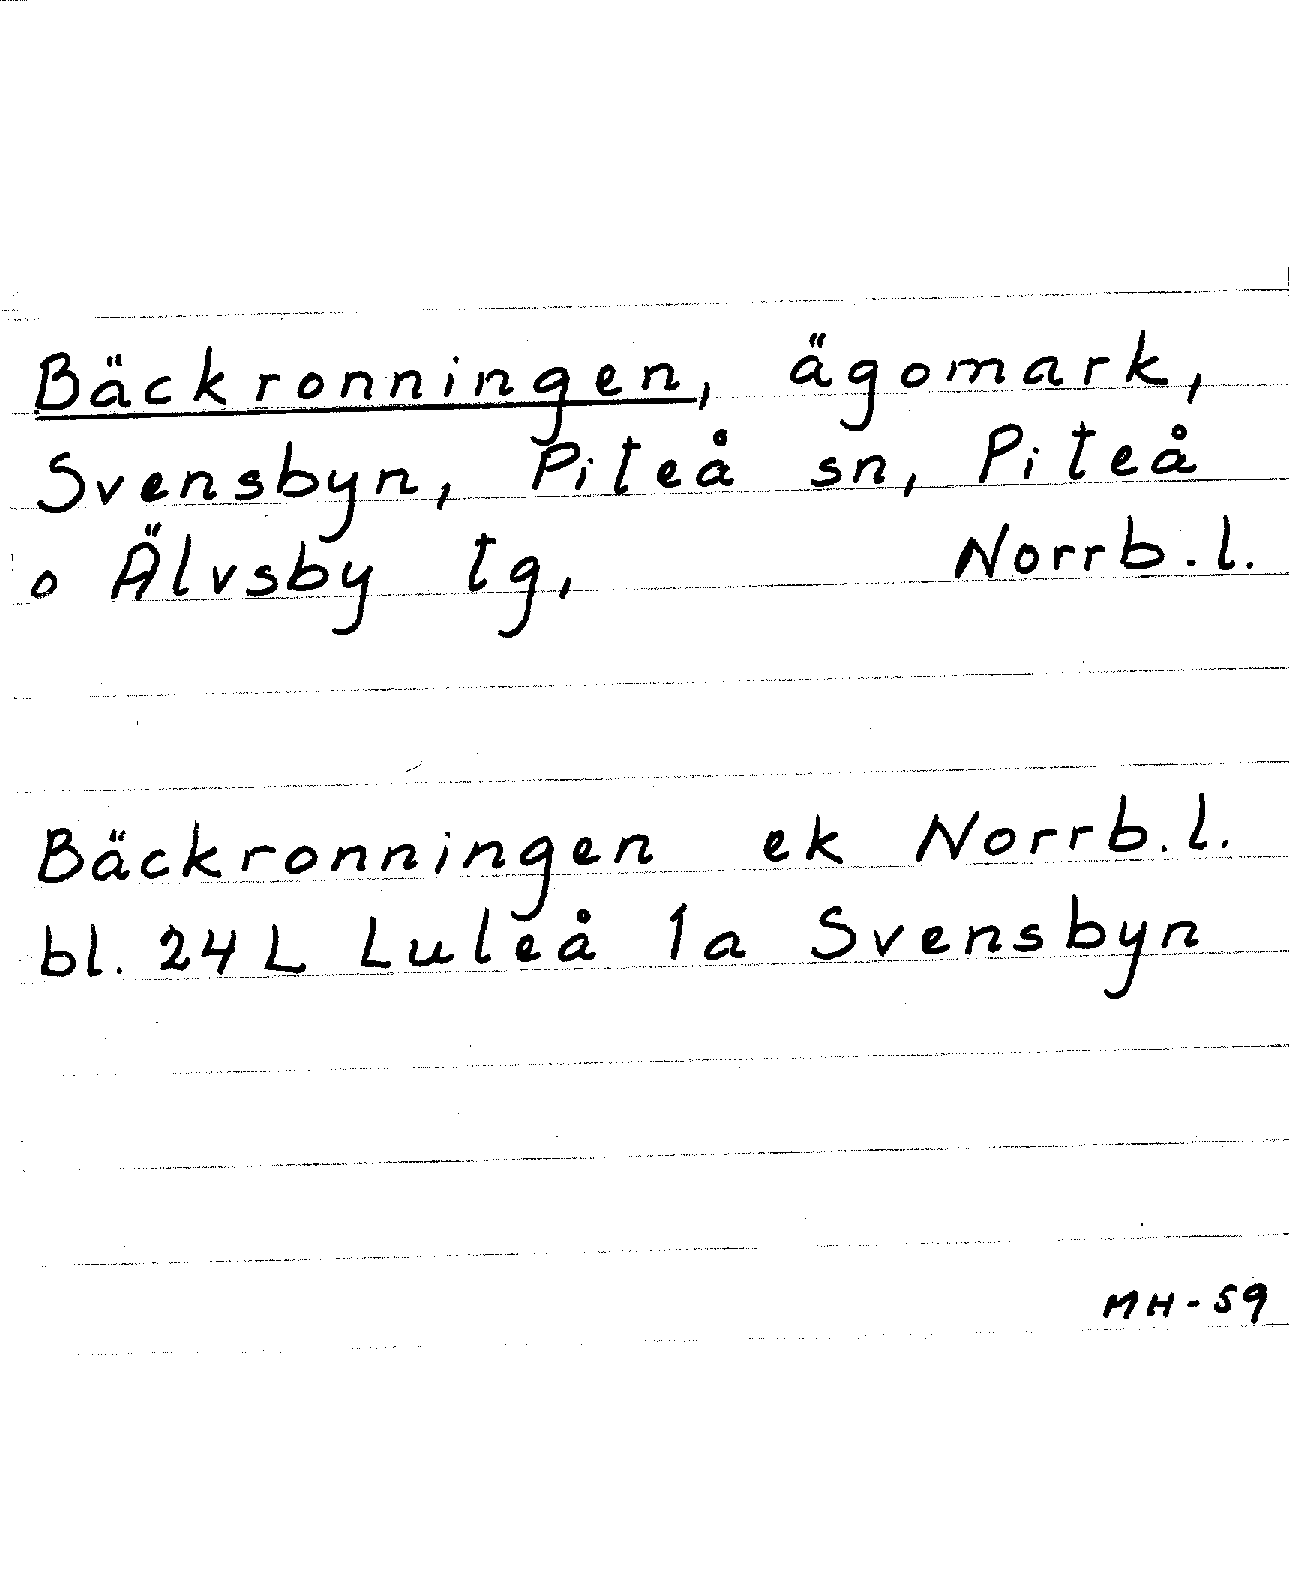 Bäckronningen, ägomark,
Svensbyn, Piteå sn, Piteå
o Älvsby tg, Norrb.l.
Bäckronningen ek Norrb.l.
bl. 24L Luleå 1a Svensbyn
MH-59